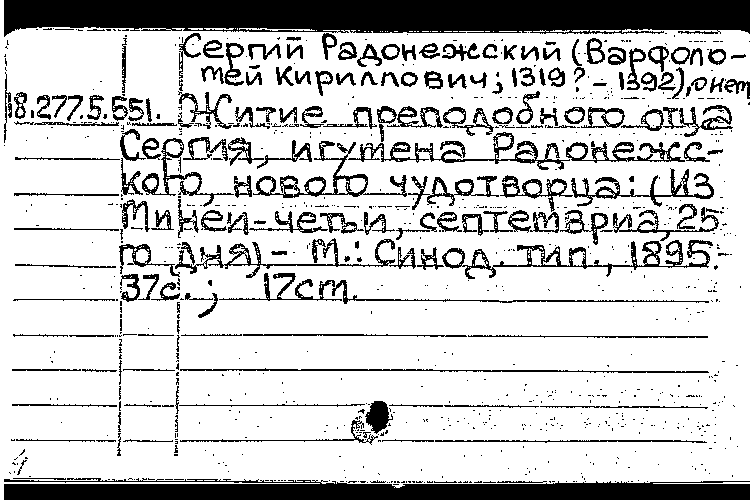 Сергий Радонежский (Варфоло-
мей Кириллович; 1319? - 1392), о нем
18.277.5.551. Житие преподобного отца
Сергия, игумена Радонежс-
кого, нового чудотворца: (Из
Миней-четьи, септемвриа, 25
го дня).- М.: Синод. тип., 1895.-
37с.; 17см.